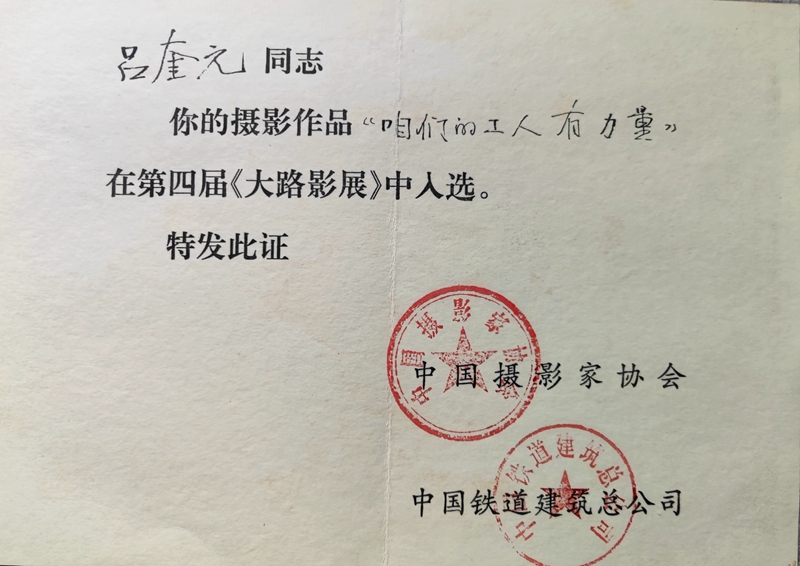 吕奎元 同志
你的摄影作品“咱们的工人有力量”
在第四届《大路影展》中入选。
特发此证
中国摄影家协会
中国摄影家协会
中国铁道建筑总公司
中国铁道建筑总公司